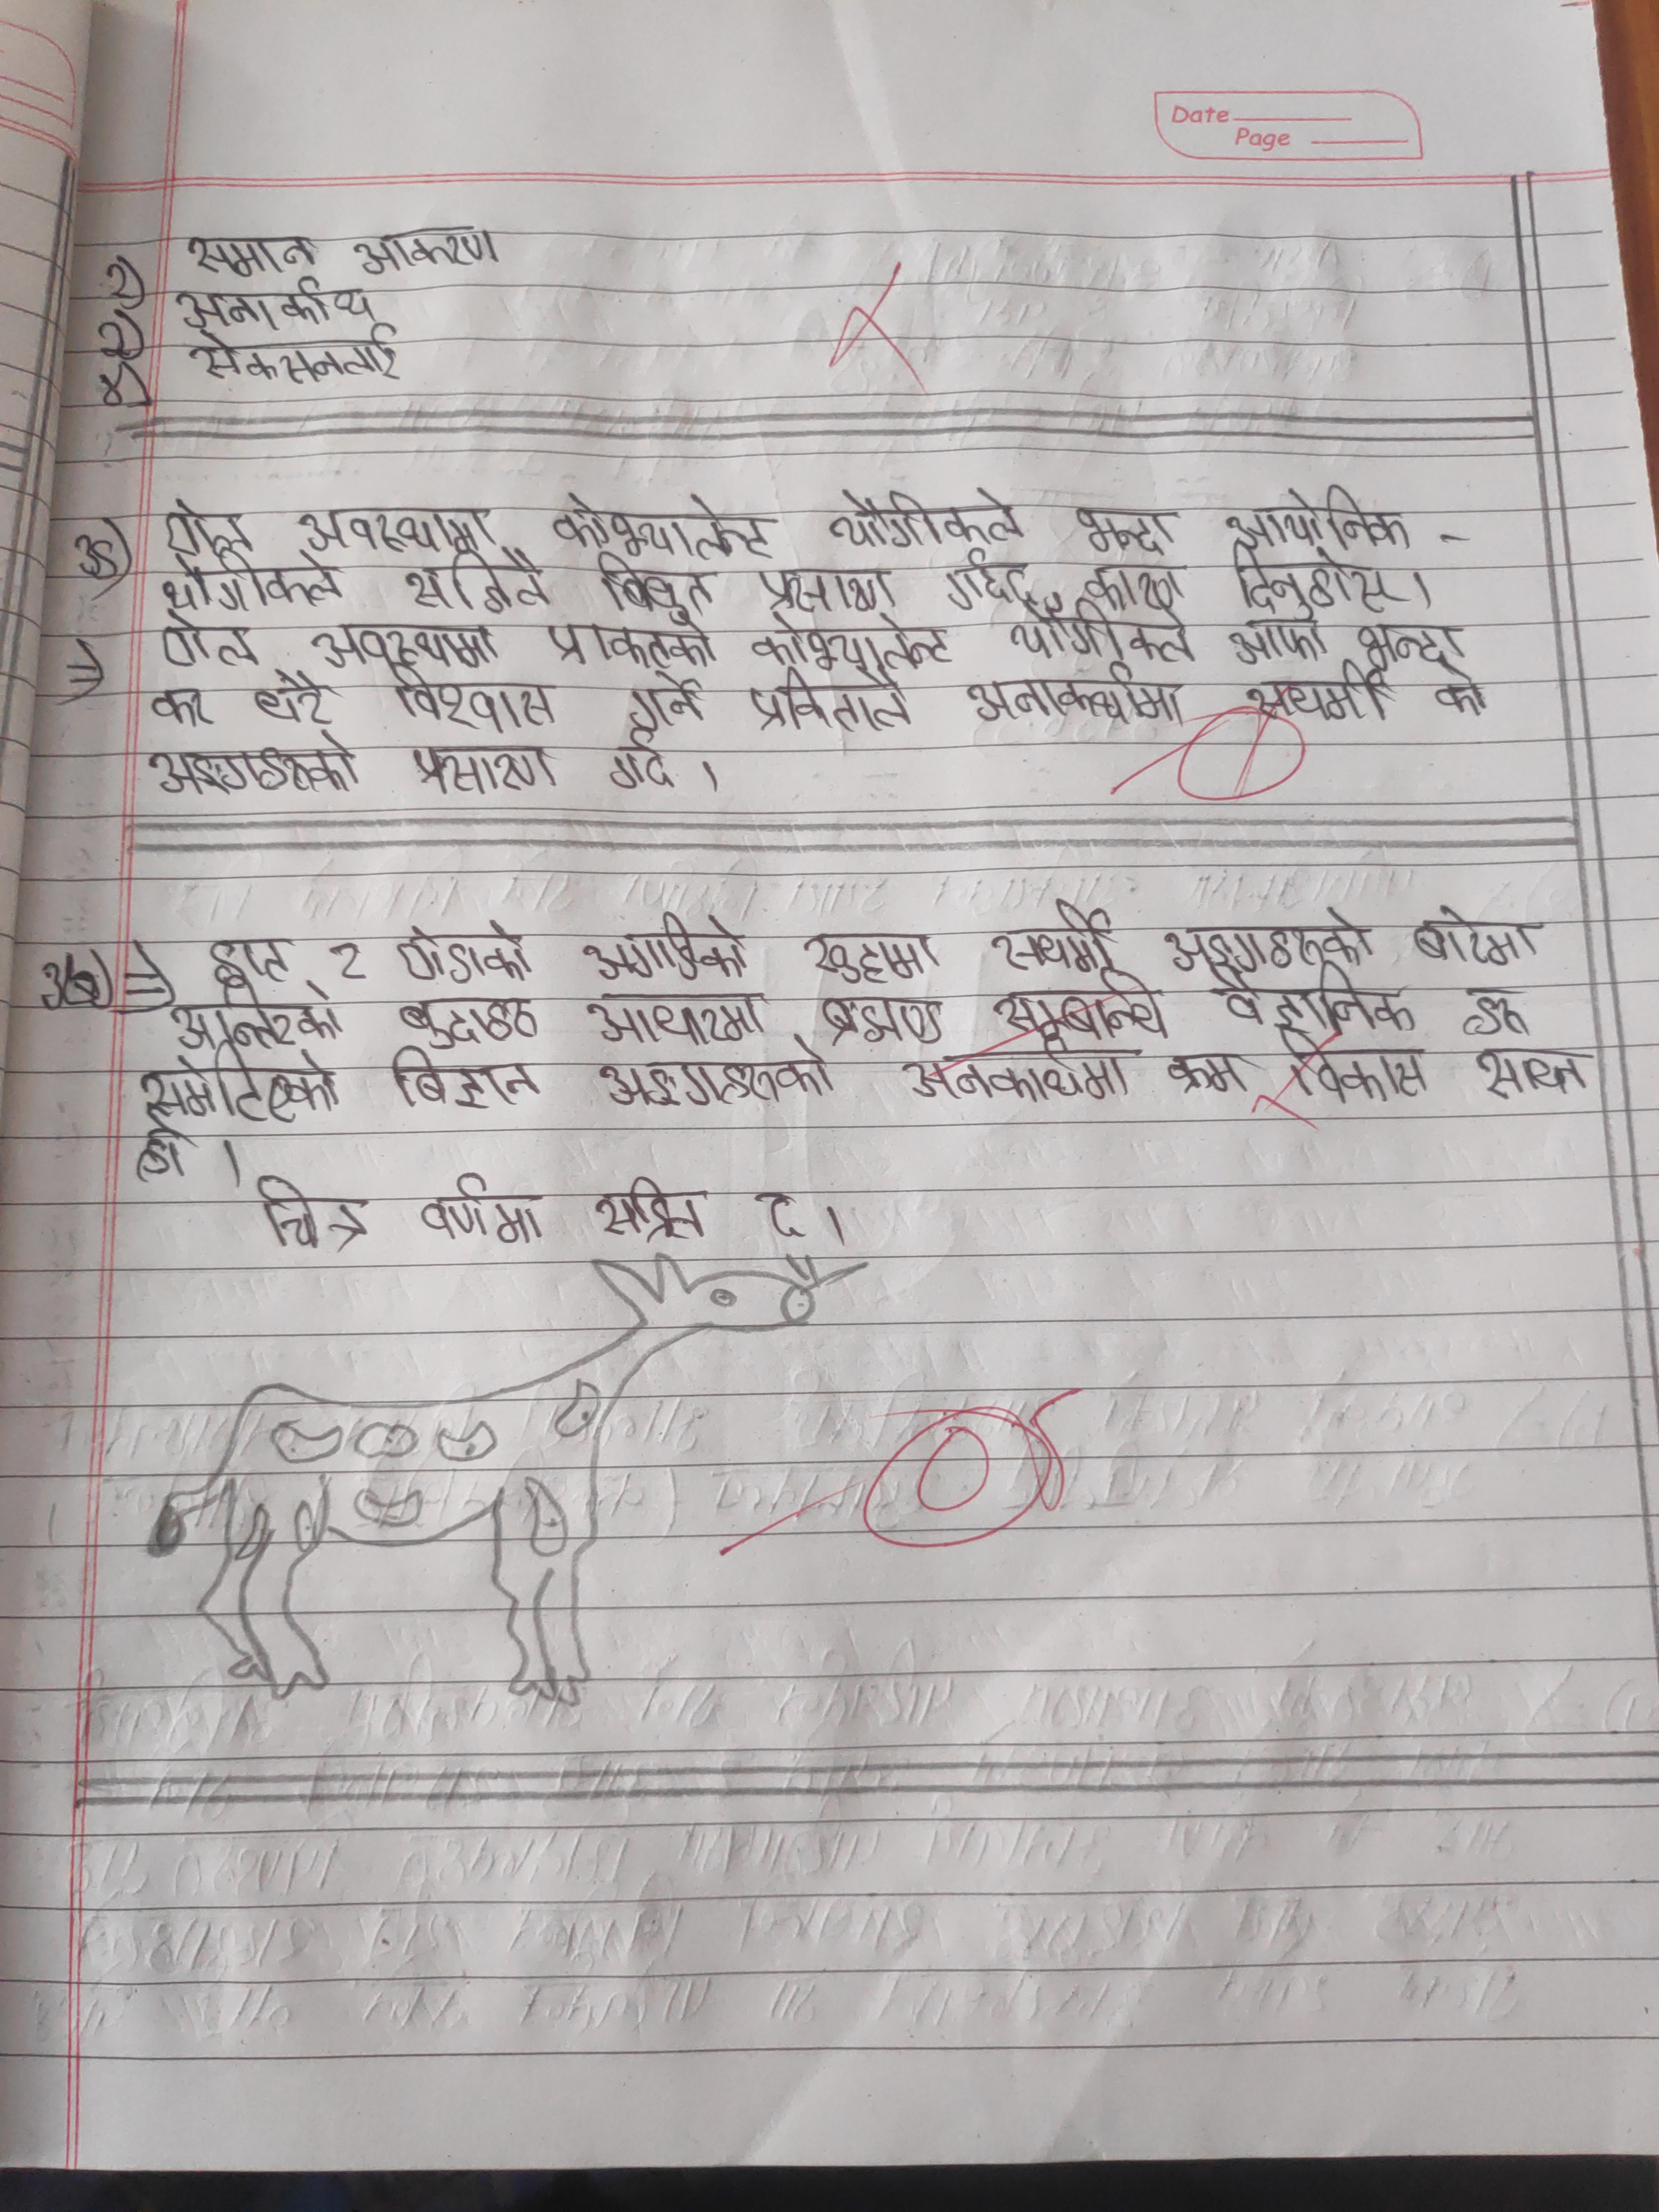 Date
Page
१) समान आकरण
२) अनार्कीय
४) सेकसनलाई
ङ) घोल अवस्थामा कोभ्यालेन्ट यौगीकले भन्दा आयोनिक -
यौगीकले सजिलै विधुत प्रसारण गर्दछ, कारण दिनुहोस।
⇒ घोल अवस्थमा प्राकतको कोभ्यालेन्ट यौगीकले आफो भन्दा
कर धेरै विश्वास गर्ने प्रकिताले अनाकर्थमा सधर्मी को
अङ्गहरुको प्रसारण गर्द ।
⇒ हात र घोडाको अगाडिको खुट्टामा सधर्मी अङ्गहरुको बारेमा
आन्तरको बुदाहरु आधारमा सम्बान्धि वैज्ञानिक हरु
समेटिएको बिज्ञान अङ्गहरुको अनकार्थमा क्रम विकास साधन
हो ।
चित्र वर्णमा सहित द ।